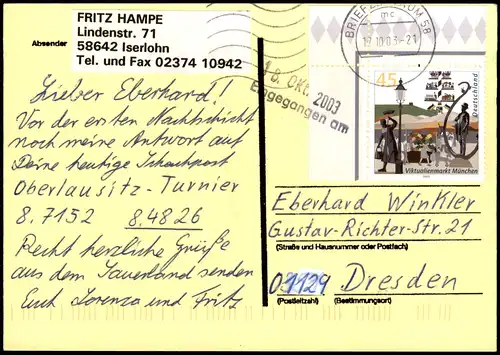 FRITZ HAMPE
Lindenstr. 71
58642 Iserlohn
Tel. und Fax 02374 10942
Absender
Lieber Eberhard!
Vor der ersten Nachtschicht
noch meine Antwort auf
Deine heutige Schachpost
Oberlausitz-Turnier
8.7152 8.4826
Recht herzliche Grüße
aus dem Sauerland senden
Euch Lorenza und Fritz
BRIEFZENTRUM 58
mc
19.10.03-21
Eingegangen am
OKT. 2003
45
Deutschland
Viktualienmarkt München
Eberhard Winkler
Gustav-Richter-Str. 21
(Straße und Hausnummer oder Postfach)
01129 Dresden
(Postleitzahl) (Bestimmungsort)